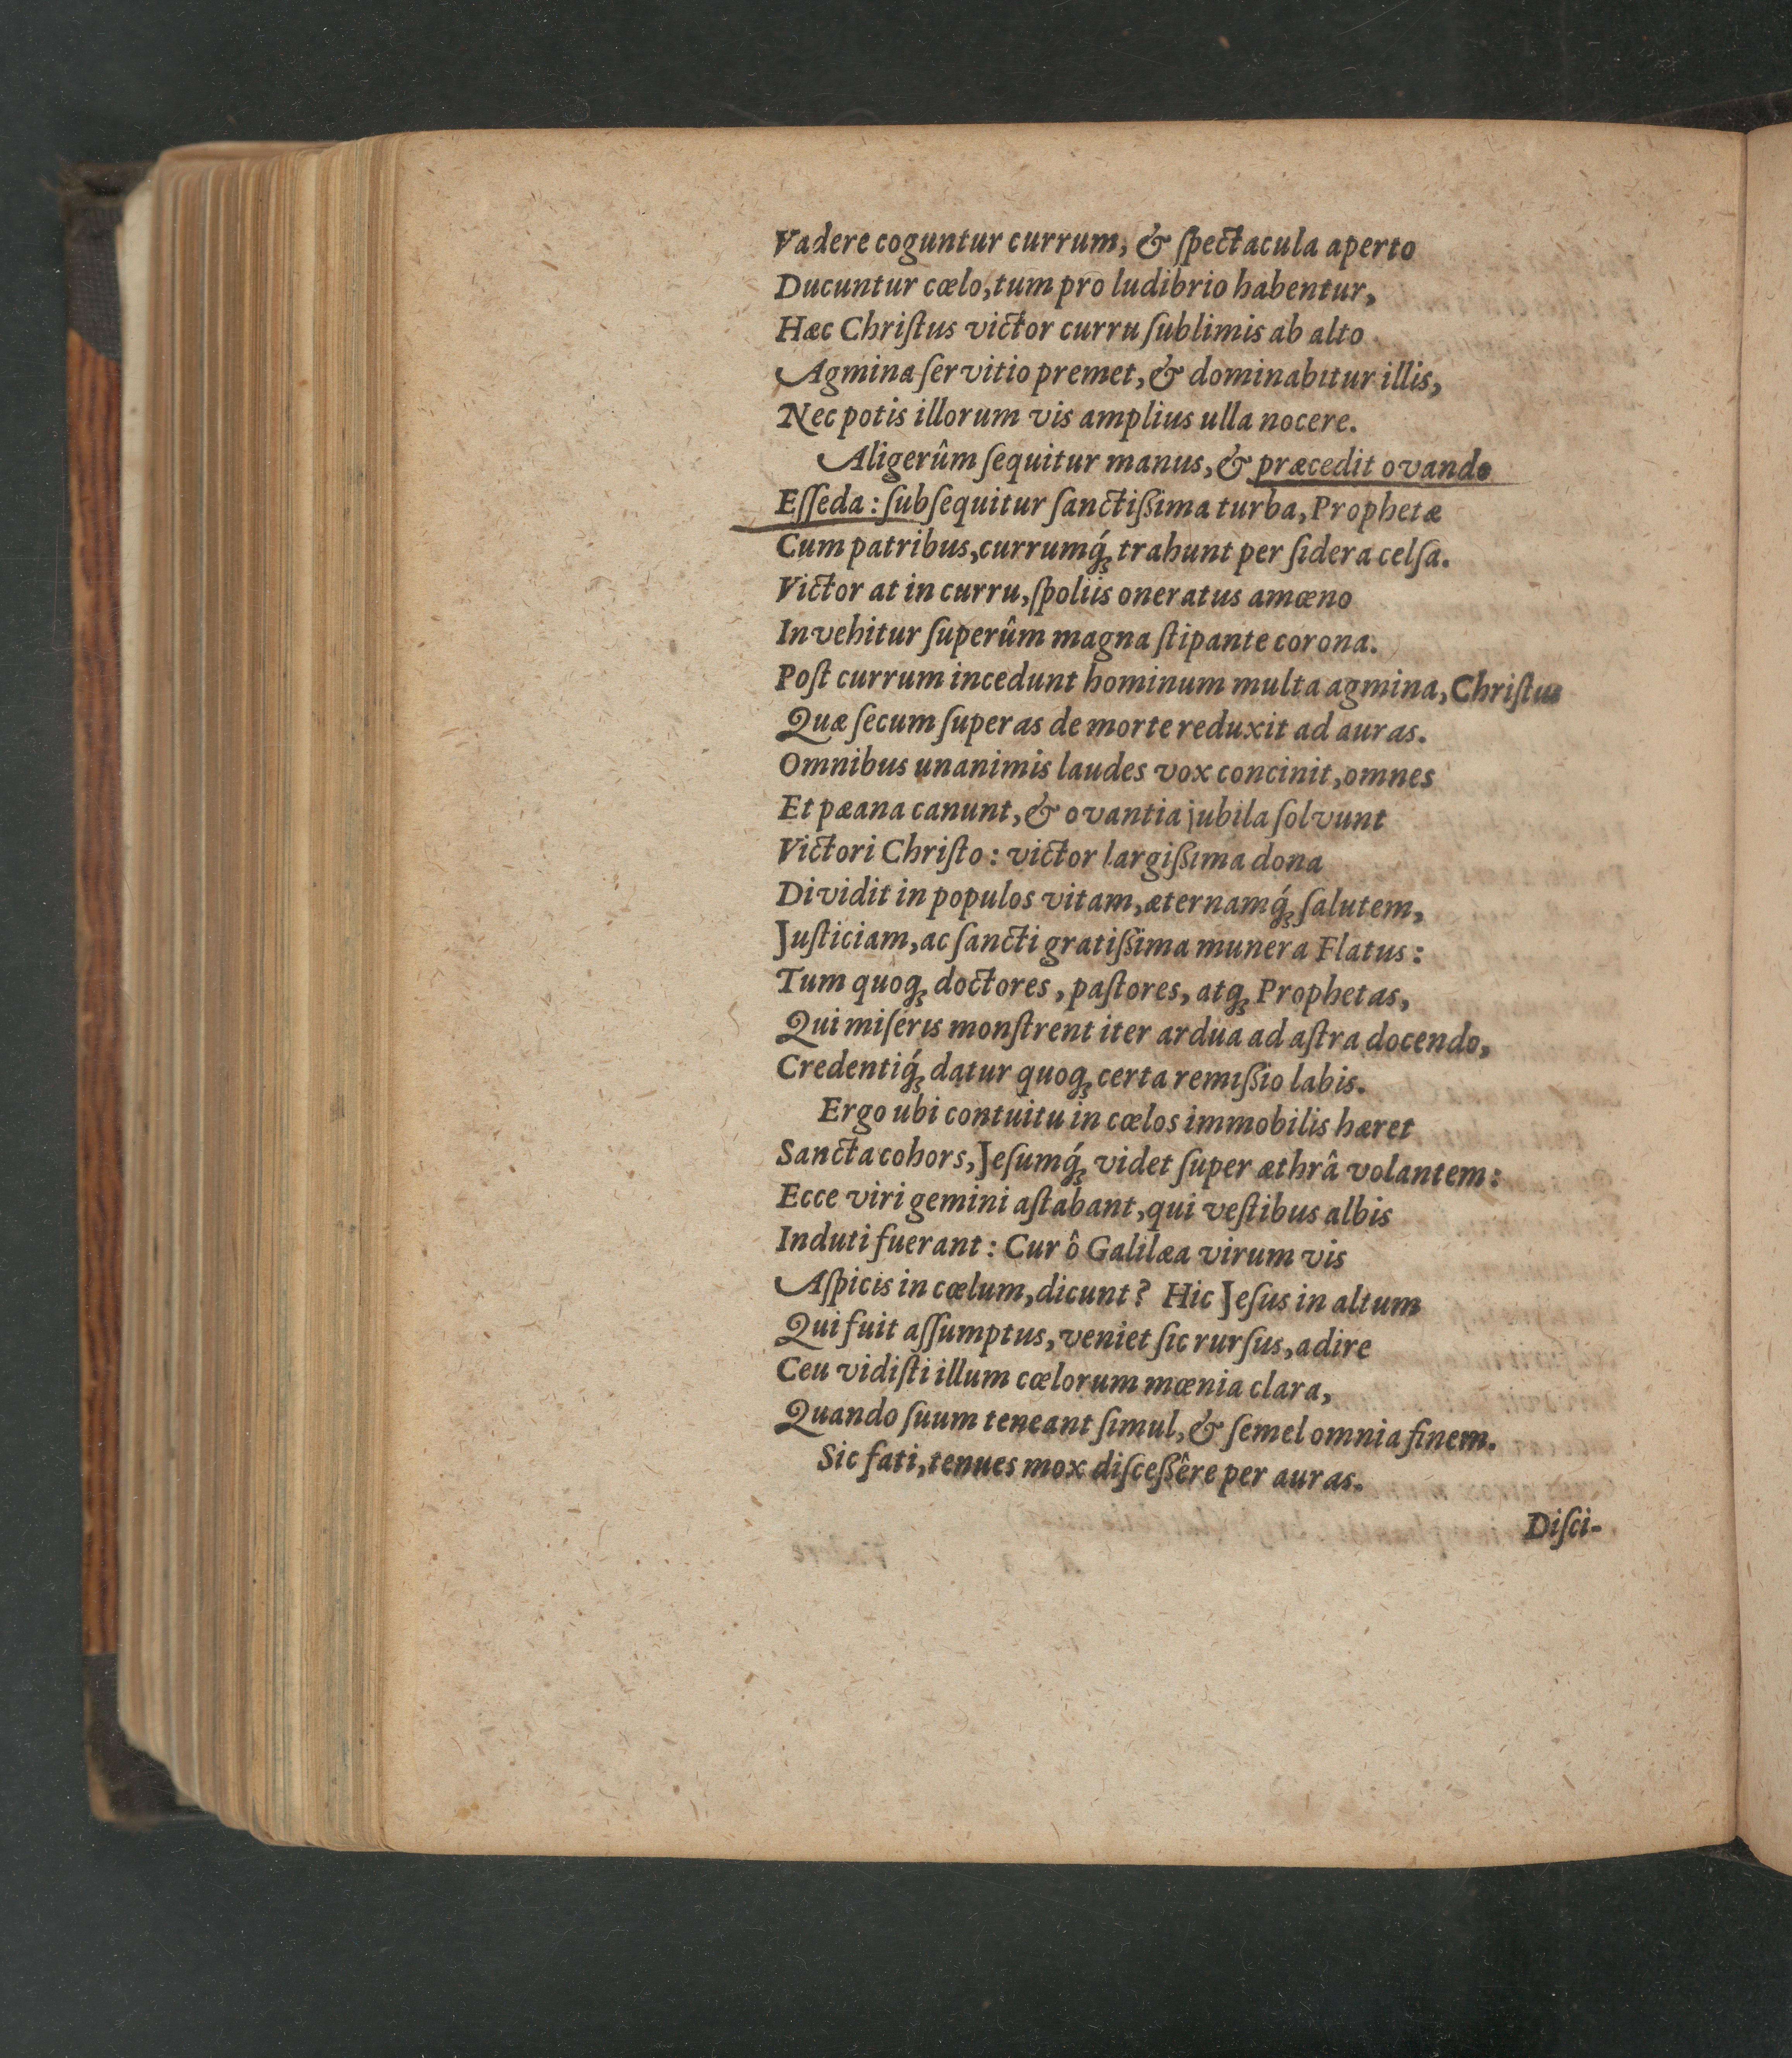 Vadere coguntur currum, & ſpectacula aperto
Ducuntur cœlo, tum pro ludibrio habentur,
Hæc Chriſtus victor curru ſublimis ab alto
Agmina ſervitio premet, & dominabitur illis,
Nec potis illorum vis amplius ulla nocere.
Aligerûm ſequitur manus, & præcedit ovando
Eſſeda: ſubſequitur ſanctißima turba, Prophetæ
Cum patribus, currumq́ꝫ trahunt per ſidera celſa.
Victor at in curru, ſpoliis oneratus amœno
Invehitur ſuperûm magna ſtipante corona.
Poſt currum incedunt hominum multa agmina, Chriſtus
Quæ ſecum ſuperas de morte reduxit ad auras.
Omnibus unanimis laudes vox concinit, omnes
Et pæana canunt, & ovantia jubila ſolvunt
Victori Chriſto: victor largißima dona
Dividit in populos vitam, æternamq́ꝫ ſalutem,
Juſticiam, ac ſancti gratißima munera Flatus:
Tum quoqꝫ doctores, paſtores, atqꝫ Prophetas,
Qui miſeris monſtrent iter ardua ad aſtra docendo,
Credentiq́ꝫ datur quoqꝫ certa remißio labis.
Ergo ubi contuitu in cœlos immobilis hæret
Sancta cohors, Jeſumq́ꝫ videt ſuper æthrâ volantem:
Ecce viri gemini aſtabant, qui veſtibus albis
Induti fuerant: Cur ô Galilæa virum vis
Aſpicis in cœlum, dicunt? Hic Jeſus in altum
Qui fuit aſſumptus, veniet ſic rurſus, adire
Ceu vidiſti illum cœlorum mœnia clara,
Quando ſuum teneant ſimul, & ſemel omnia finem.
Sic fati, tenues mox diſceßêre per auras.
Diſci-